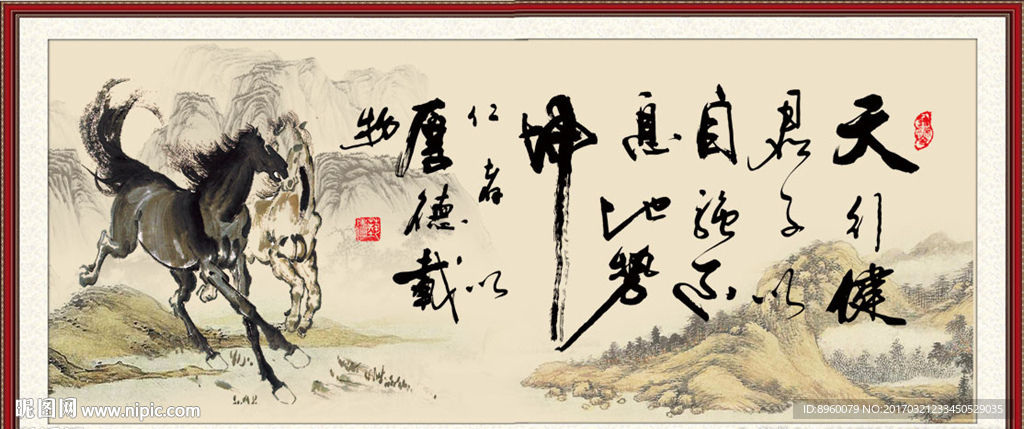 天行健
君子以
自强不
息地势
坤
仁者以
厚德載
物
昵图网 www.nipic.com
ID:8960079 NO:20170321233450529035